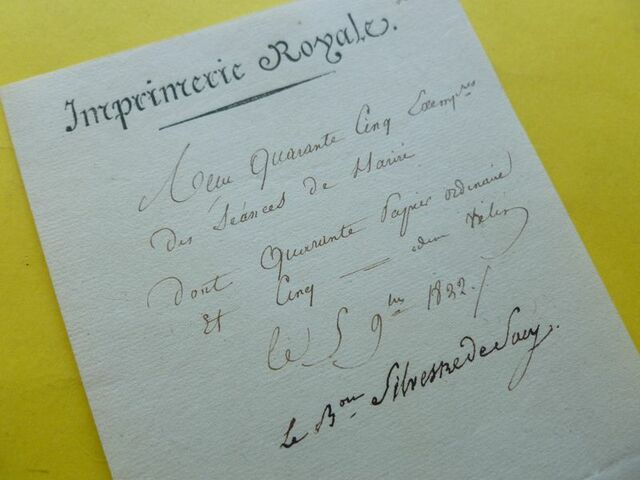 Imprimerie Royale.
Reçu Quarante Cinq Exempres
des Séances de Hariri
dont Quarante Papier ordinaire
Et Cinq — idem Vélin
le 5 9bre 1822 /
Le Bon Silvestre de Sacy.